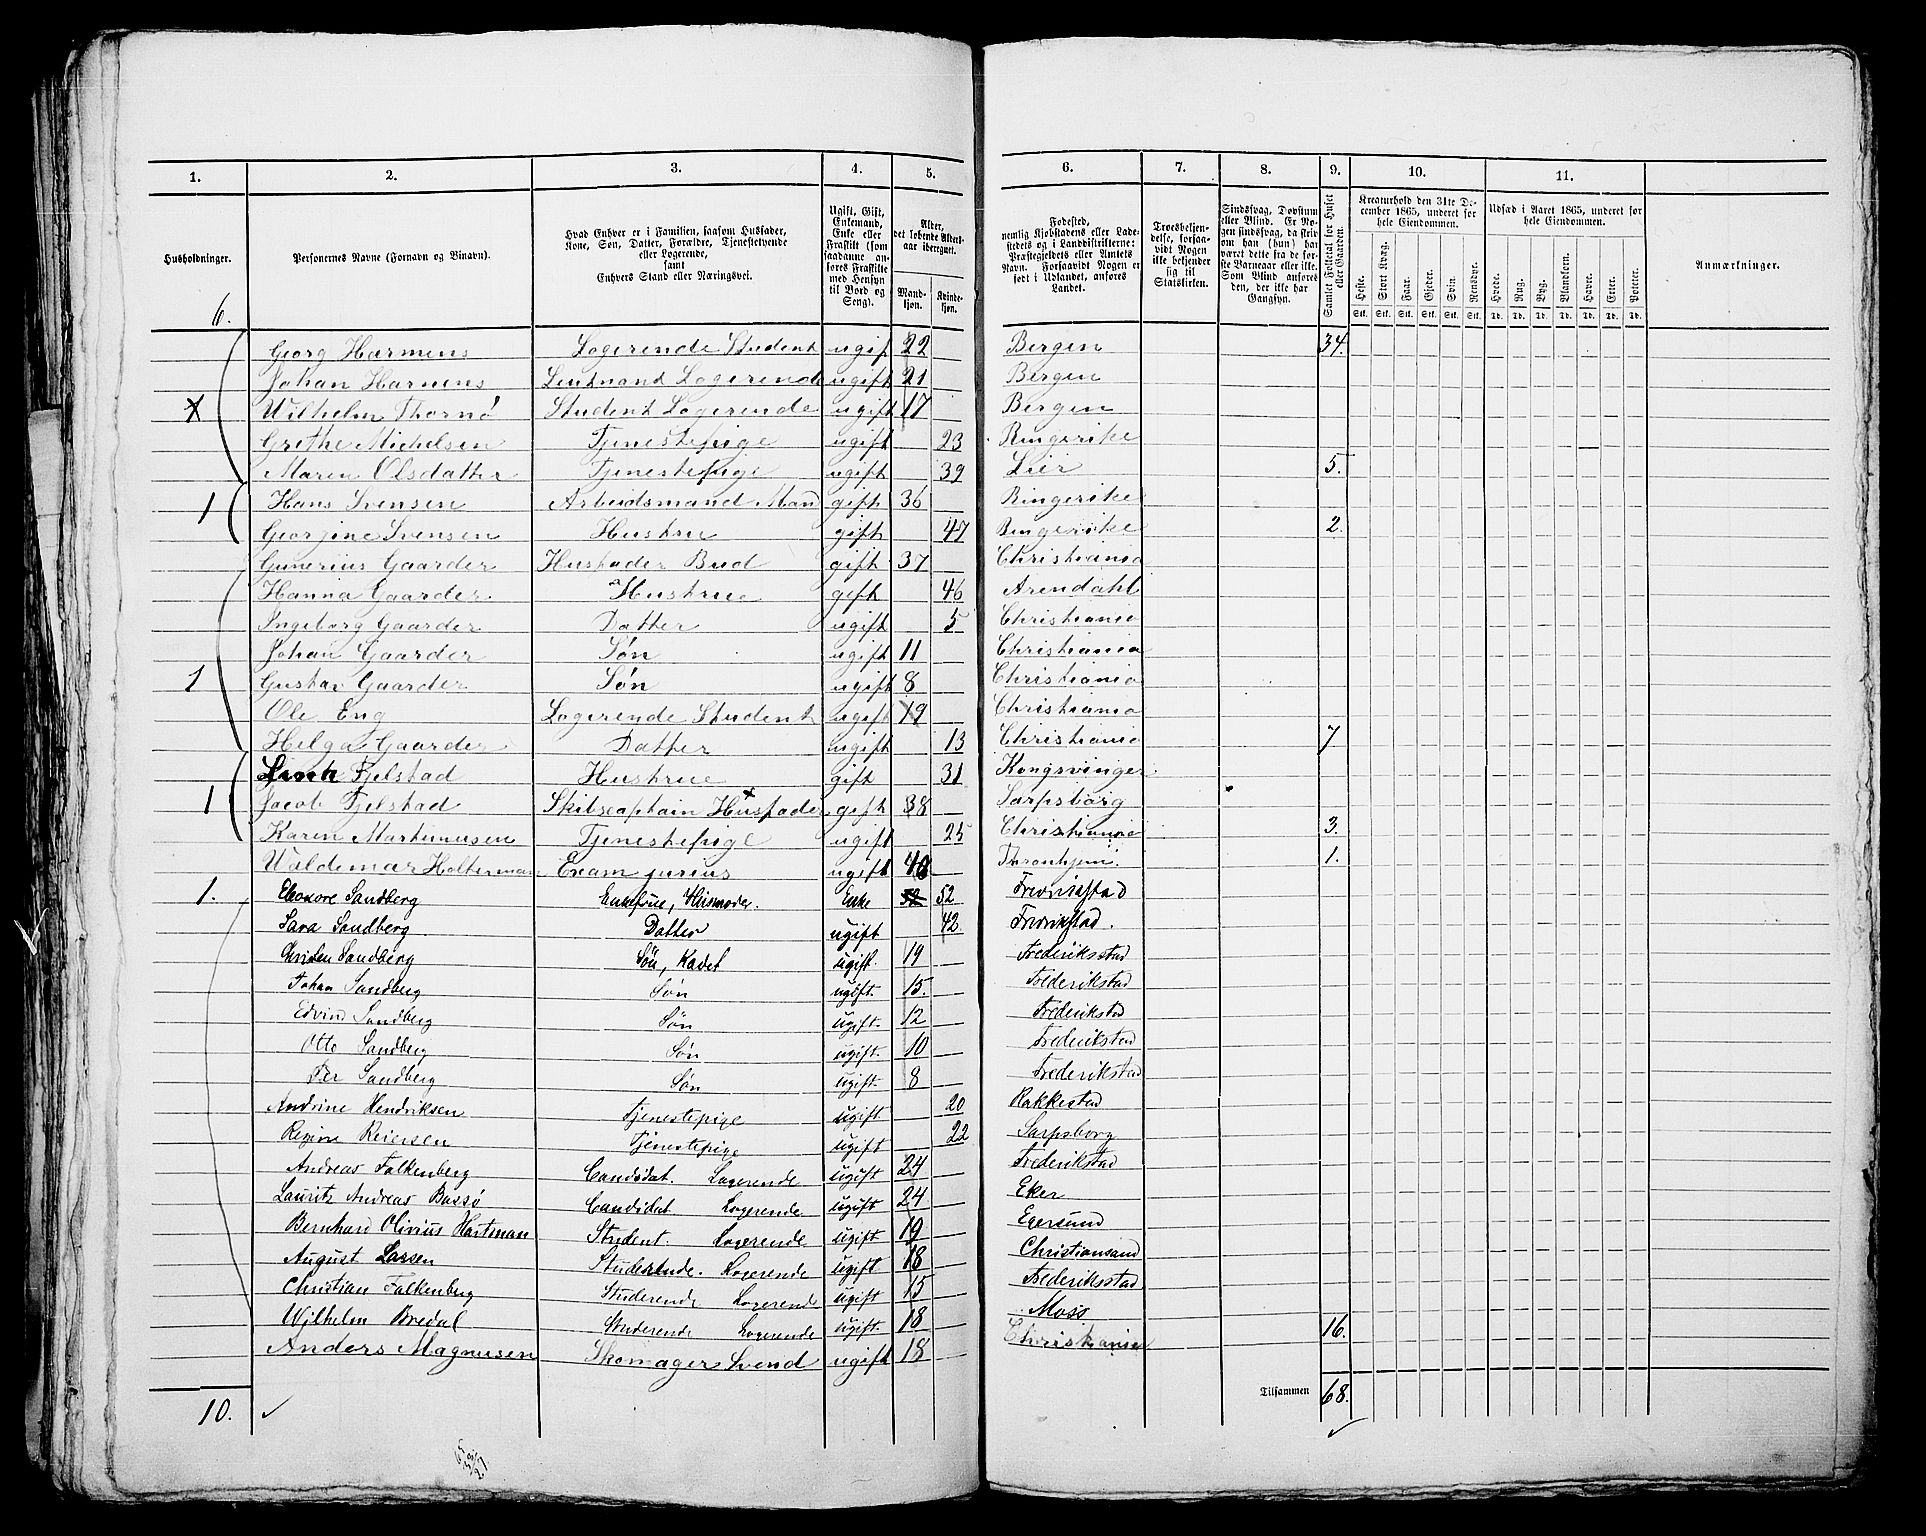 1. 2. 3. 4. 5. 6. 7. 8. 9. 10. 11.
Husholdninger.
Personernes Navne (Fornavn og Binavn).
Hvad Enhver er i Familien, saasom Husfader,
Kone, Søn, Datter, Forældre, Tjenestetyende
eller Logerende,
samt
Enhvers Stand eller Næringsvei.
Ugift, Gift,
Enkemand,
Enke eller
Fraskilt (som
saadanne an-
føres Fraskilte
med Hensyn
til Bord og
Seng).
Alder,
det løbende Alders-
aar iberegnet.
Mand-
kjøn.
Kvinde-
kjøn.
Fødested,
nemlig Kjøbstadens eller Lade-
stedets og i Landdistrikterne:
Præstegjeldets eller Amtets
Navn. Forsaavidt Nogen er
født i Udlandet, anføres
Landet.
Troesbekjen-
delse, forsaa-
vidt Nogen
ikke bekjender
sig til
Statskirken.
Sindssvag, Døvstum
eller Blind. Er No-
gen sindssvag, da skriv
om han (hun) har
været dette fra de før-
ste Barneaar eller ikke.
Som Blind anføres
den, der ikke har
Gangsyn.
Samlet Folketal for Huset
eller Gaarden.
Kreaturhold den 31te De-
cember 1865, underet for
hele Eiendommen.
Heste. Stort Kvæg. Faar. Gjeder. Svin. Rensdyr.
Stk. Stk. Stk. Stk. Stk. Stk.
Udsæd i Aaret 1865, underet for
hele Eiendommen.
Hvede. Rug. Byg. Blandkorn. Havre. Erter. Poteter.
Td. Td. Td. Td. Td. Td. Td.
Anmærkninger.
6.
Georg Harmens Logerende Student ugift 22 Bergen 34.
Johan Harmens Leutnand Logerende ugift 21 Bergen
Wilhelm Thornø Student Logerende ugift 17 Bergen
Grethe Michelsen Tjenestepige ugift 23 Ringerike
Maren Olsdatter Tjenestepige ugift 39 Lier 5.
1 Hans Svensen Arbeidsmand Mand gift 36 Ringerike
Georgine Svensen Hustrue gift 47 Ringerike 2.
Gunerius Gaarder Husfader Bud gift 37 Christiania
Hanna Gaarder Hustrue gift 46 Arendahl
Ingeborg Gaarder Datter ugift 5 Christiania
Johan Gaarder Søn ugift 11 Christiania
1 Gustav Gaarder Søn ugift 8 Christiania
Ole Eng Logerende Student ugift 19 Christiania
Helga Gaarder Datter ugift 13 Christiania 7
Fjelstad Hustrue gift 31 Kongsvinger
1 Jacob Fjelstad Skibscaptain Husfader gift 38 Sarpsborg
Karen Martinusen Tjenestepige ugift 25 Christiania 3.
Waldemar Holterman Exam jurius ugift 40 Thronhjem. 1.
1. Eleonore Sandberg Enkefrue, Husmoder. Enke 52 Fredrikstad
Sara Sandberg Datter ugift 42 Fredrikstad.
Christen Sandberg Søn, Kadet ugift. 19 Frederiksstad
Johan Sandberg Søn ugift. 15. Frederikstad
Edvind Sandberg Søn ugift. 12 Frederikstad
Otto Sandberg Søn ugift. 10 Frederikstad
Per Sandberg Søn ugift. 8 Frederikstad
Andrine Hendriksen Tjenestepige ugift. 20 Rakkestad
Regine Reiersen Tjenestepige ugift 22 Sarpsborg
Andreas Falkenberg Candidat. Logerende ugift 24 Frederikstad
Lauritz Andreas Bassø Candidat Logerende ugift 24 Eker
Bernhard Olivius Hartman Student. Logerende ugift 19 Egersund
August Larsen Studerende. Logerende ugift 18 Christiansand
Christian Falkenberg Studerende Logerende ugift 15 Frederiksstad
Wilhelm Bredal Studerende Logerende ugift. 18 Moss 16.
Anders Magnusen Skomager Svend ugift 18 Christiania
10. Tilsammen 68.